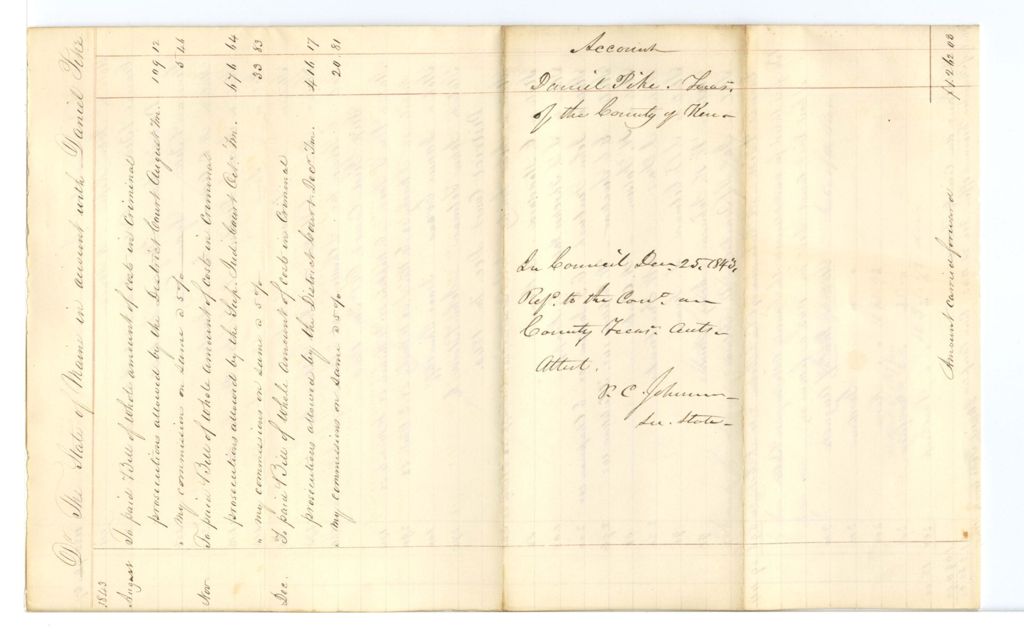 Dr. The State of Maine in account with Daniel Pike
1843
August To paid Bill of whole amount of costs in Criminal
prosecutions allowed by the District Court August Tm. 109 12
" my commission on same a 5 % 5 46
Nov. To paid Bill of Whole amount of costs in Criminal
prosecutions allowed by the Sup. Jud. Court Octr. Tm. 676 64
" my commissions on same a 5 % 33 83
Dec. To paid Bill of Whole Amount of Costs in Criminal
prosecutions allowed by the District Court Decr. Tm. 416 17
" my commissions on same a 5 % 20 81
Amount carried forward $1262 03
Account
Daniel Pike. Treasr.
of the County of Ken-
In Council Decr. 25. 1843.
Refd. to the Come. on
County Treasr. Acts-
Attest.
P. C. Johnson-
Sec. State-